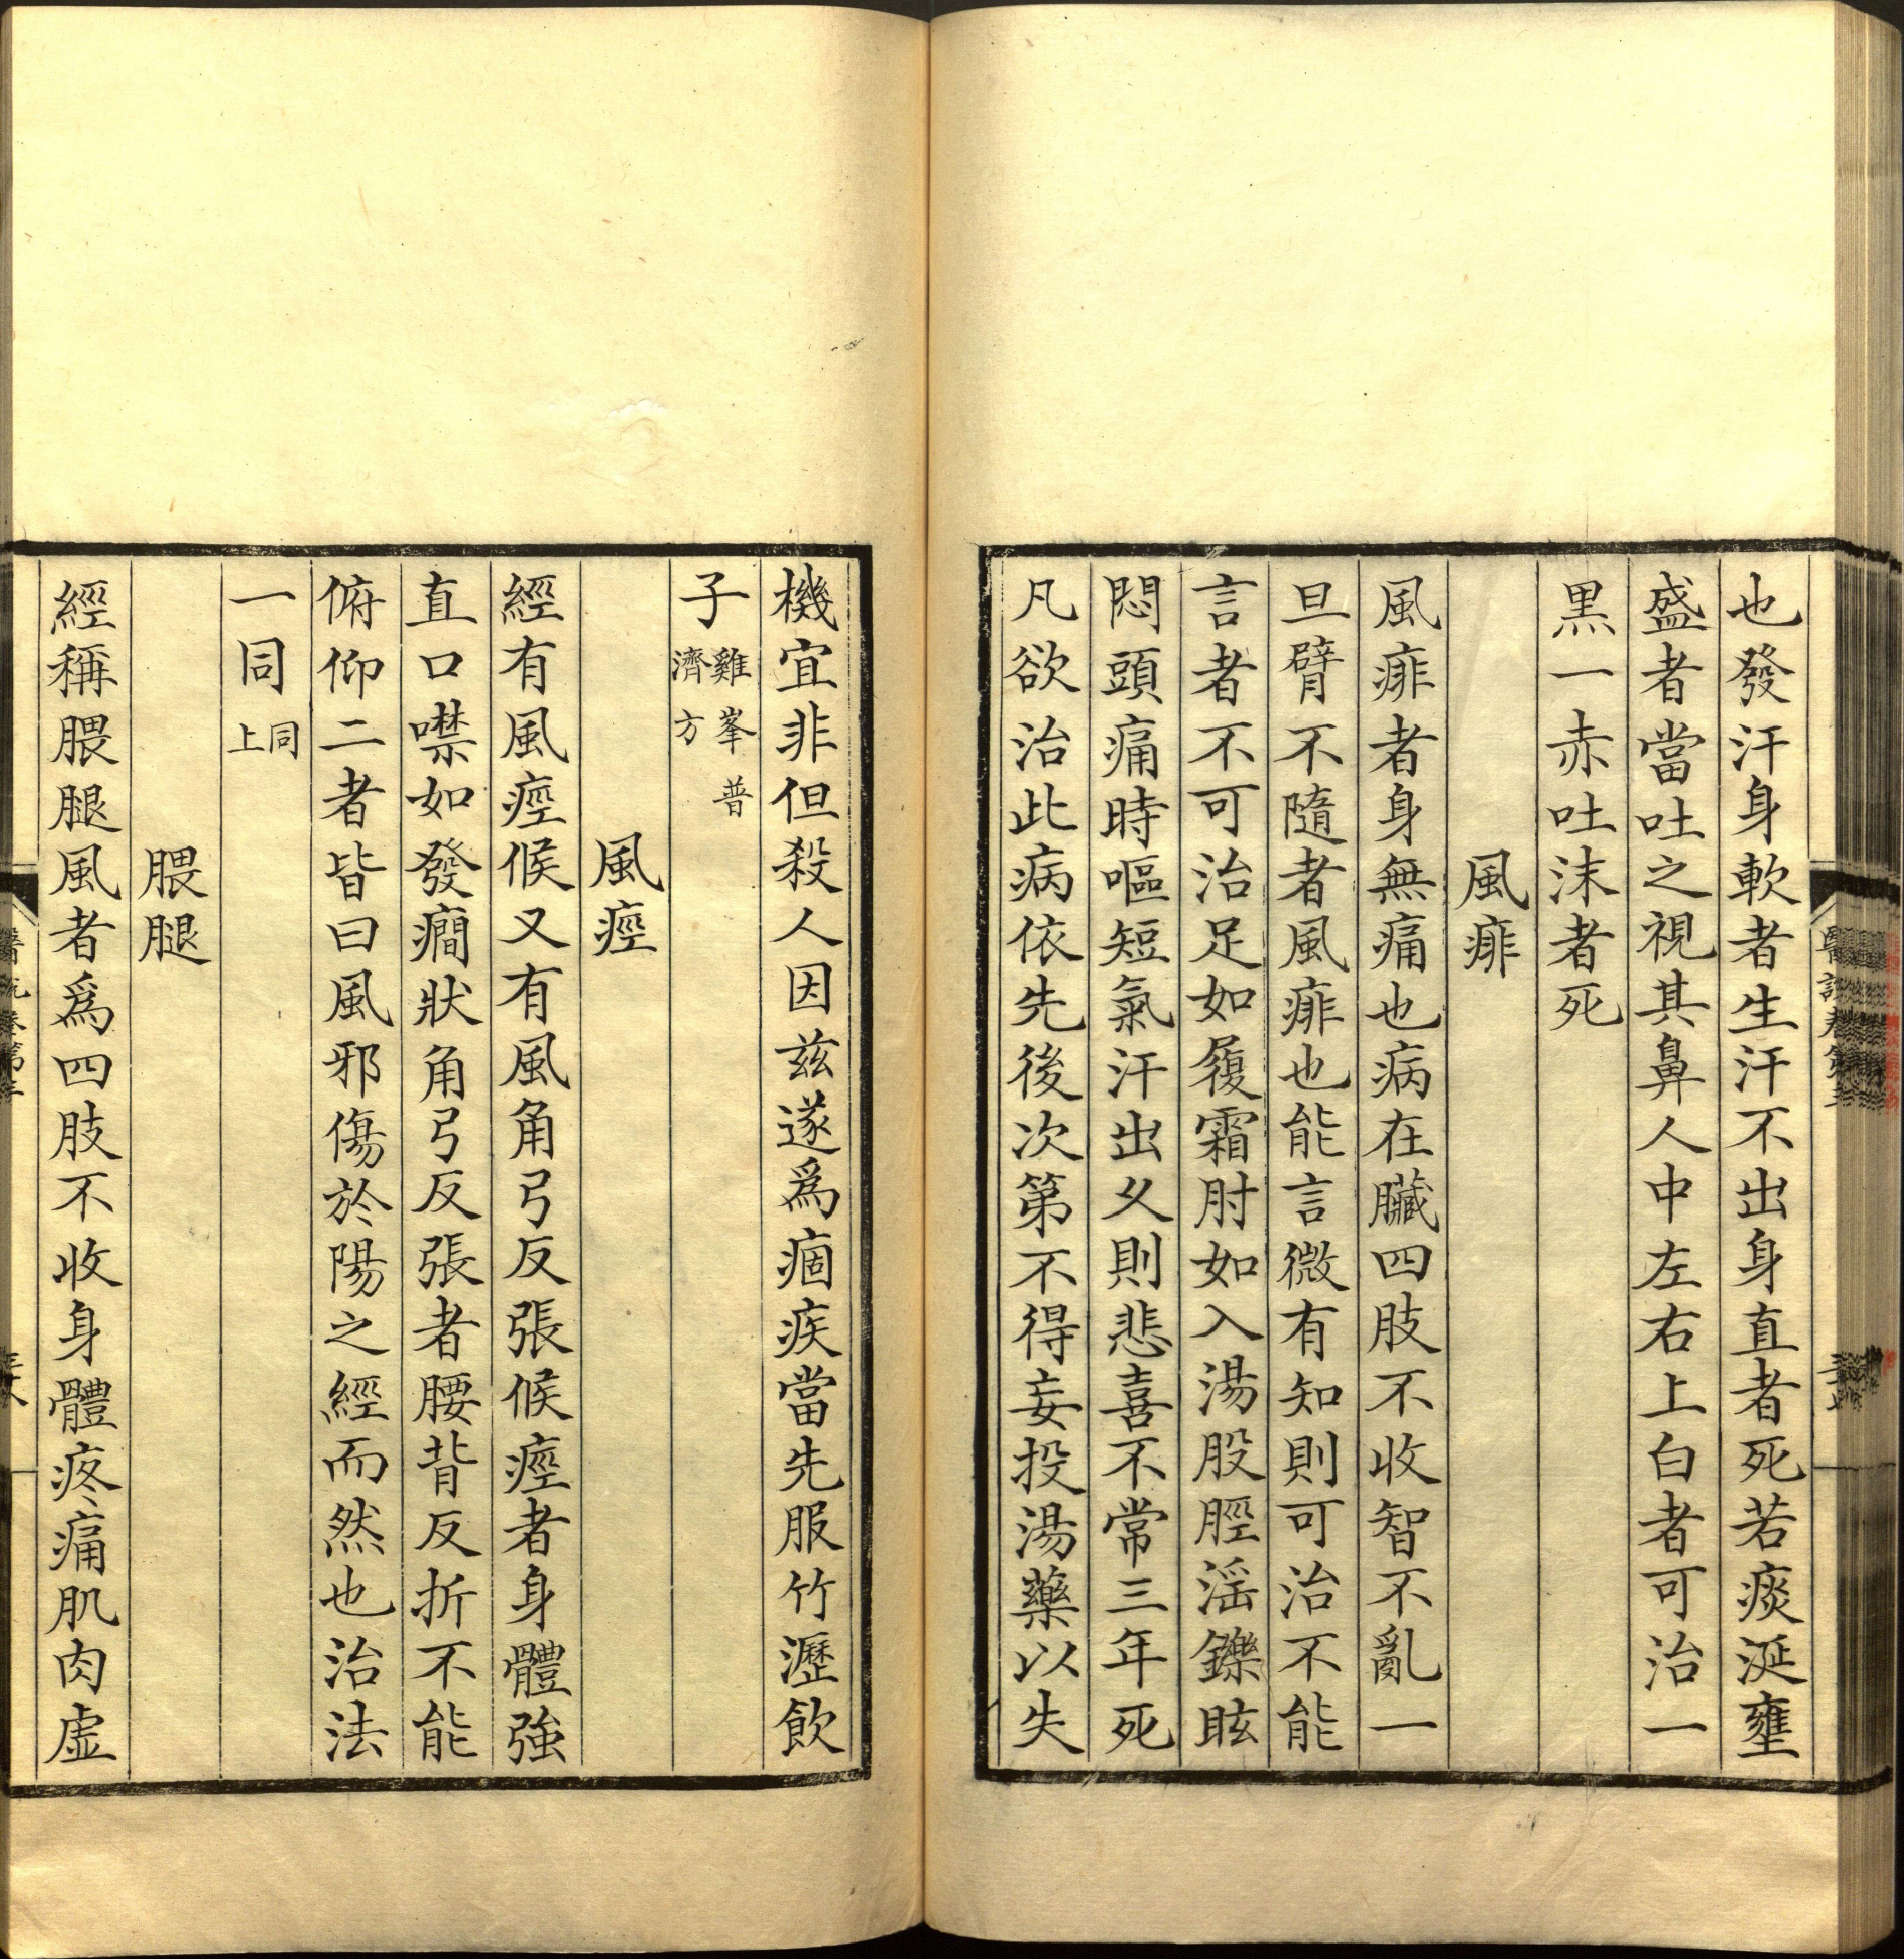 也發汗身軟者生汗不出身直者死若痰涎壅
盛者當吐之視其鼻人中左右上白者可治一
黑一赤吐沫者死
風痱
風痱者身無痛也病在臟四肢不收智不亂一
旦臂不隨者風痱也能言微有知則可治不能
言者不可治足如履霜肘如入湯股脛滛鑠眩
悶頭痛時嘔短氣汗出乆則悲喜不常三年死
凡欲治此病依先後次第不得妄投湯藥以失
機宜非但殺人因茲遂爲痼疾當先服竹瀝飲
子雞峯普
濟方
風痙
經有風痙候又有風角弓反張候痙者身體強
直口噤如發癎狀角弓反張者腰背反折不能
俯仰二者皆曰風邪傷於陽之經而然也治法
一同同
上
腲腿
經稱腲腿風者爲四肢不收身體疼痛肌肉虛